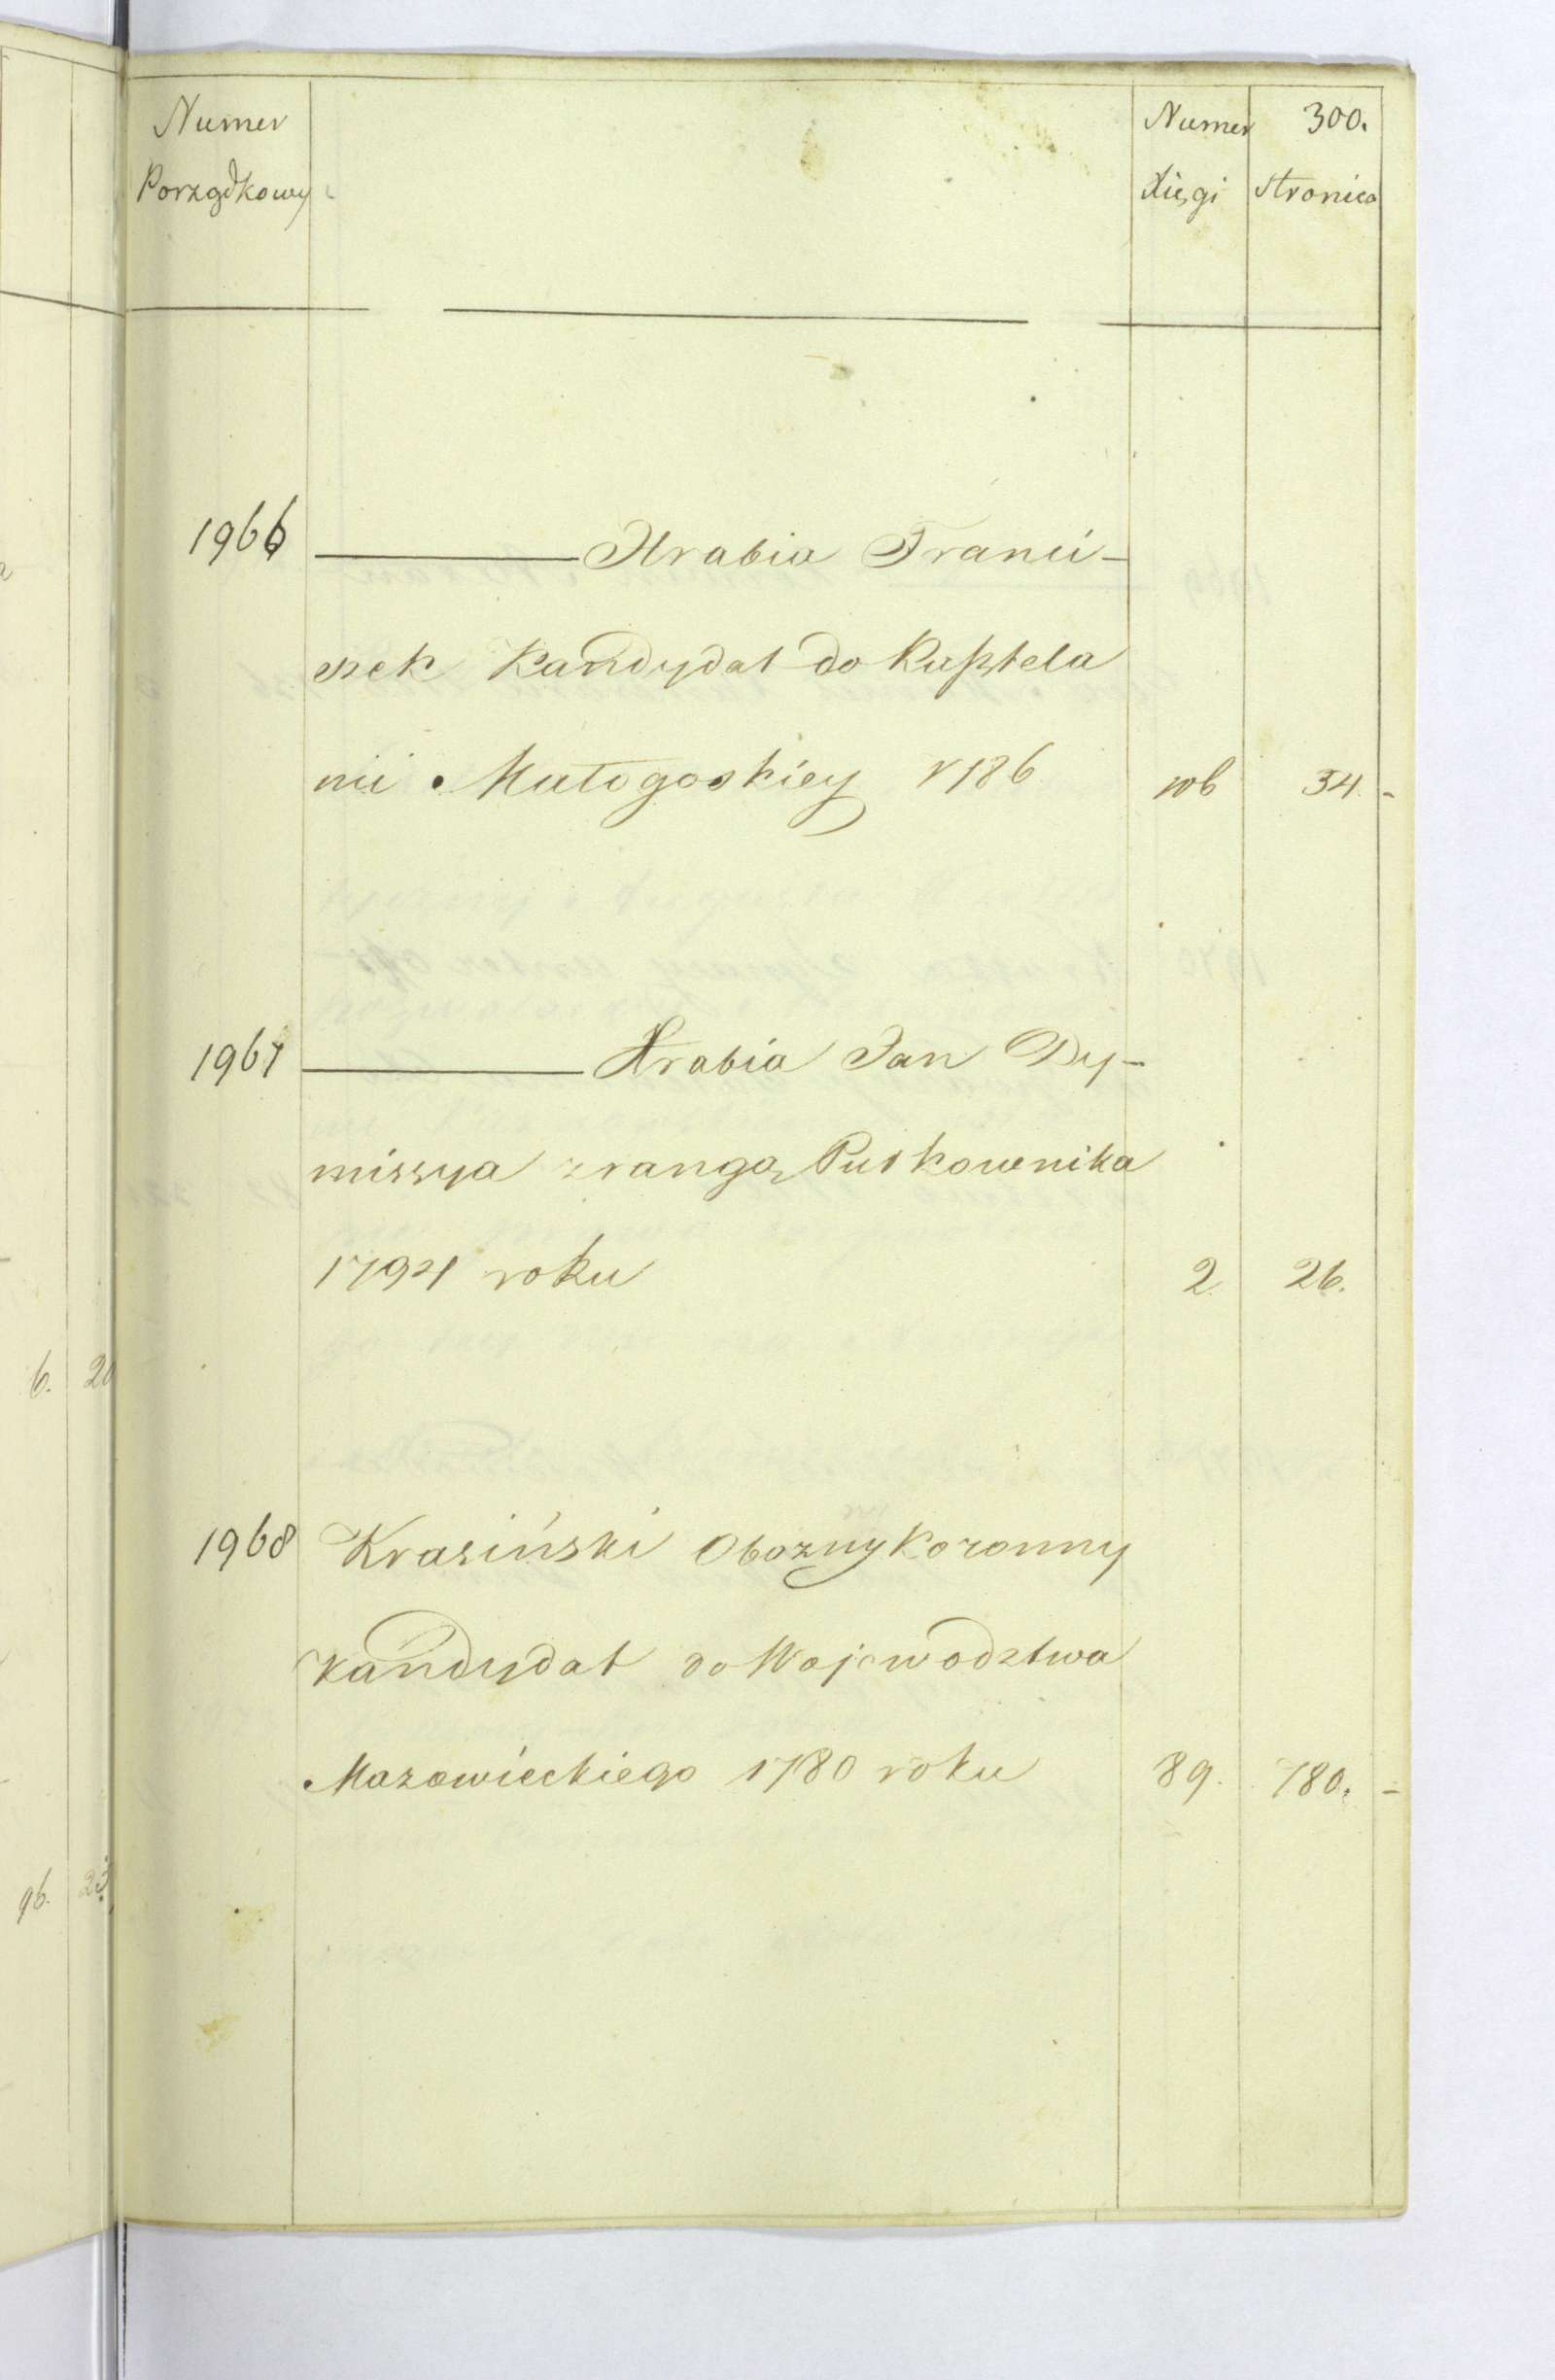 Numer
Porządkowy
Numer
Xięgi
300.
Stronica
1966 ——— Hrabia Franci-
szek Kandydat do Kasztela
nii Małogoskiey 1786 106 34.-
1967 ——— Hrabia Jan Dy-
missya z rangą Pułkownika
1794 roku 2 26.
1968 Krasiński Obozny Koronny
Kandydat do Wojewodztwa
Mazowieckiego 1780 roku 89. 180.-
6. 20
96. 23.